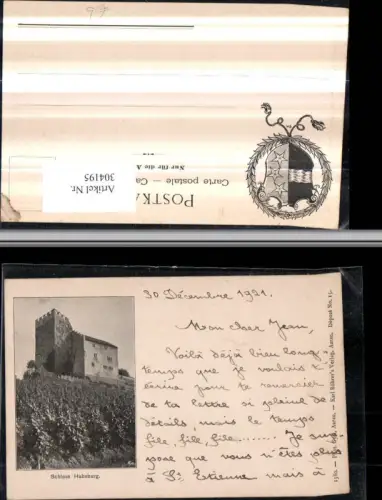 Artikel Nr.
304195
POSTKA
Carte postale — Ca
Nur für die A
30 Décembre 1921.
Mon cher Jean,
Voilà déjà bien long-
temps que je voulais t'
écrire pour te remercier
de ta lettre si pleine de
détails, mais le temps
file, file, file...... Je sup-
pose que vous n'êtes plus
à St. Etienne mais à
Schloss Habsburg.
Aarau. — Karl Bührer's Verlag, Aarau. Déposé No. 15.